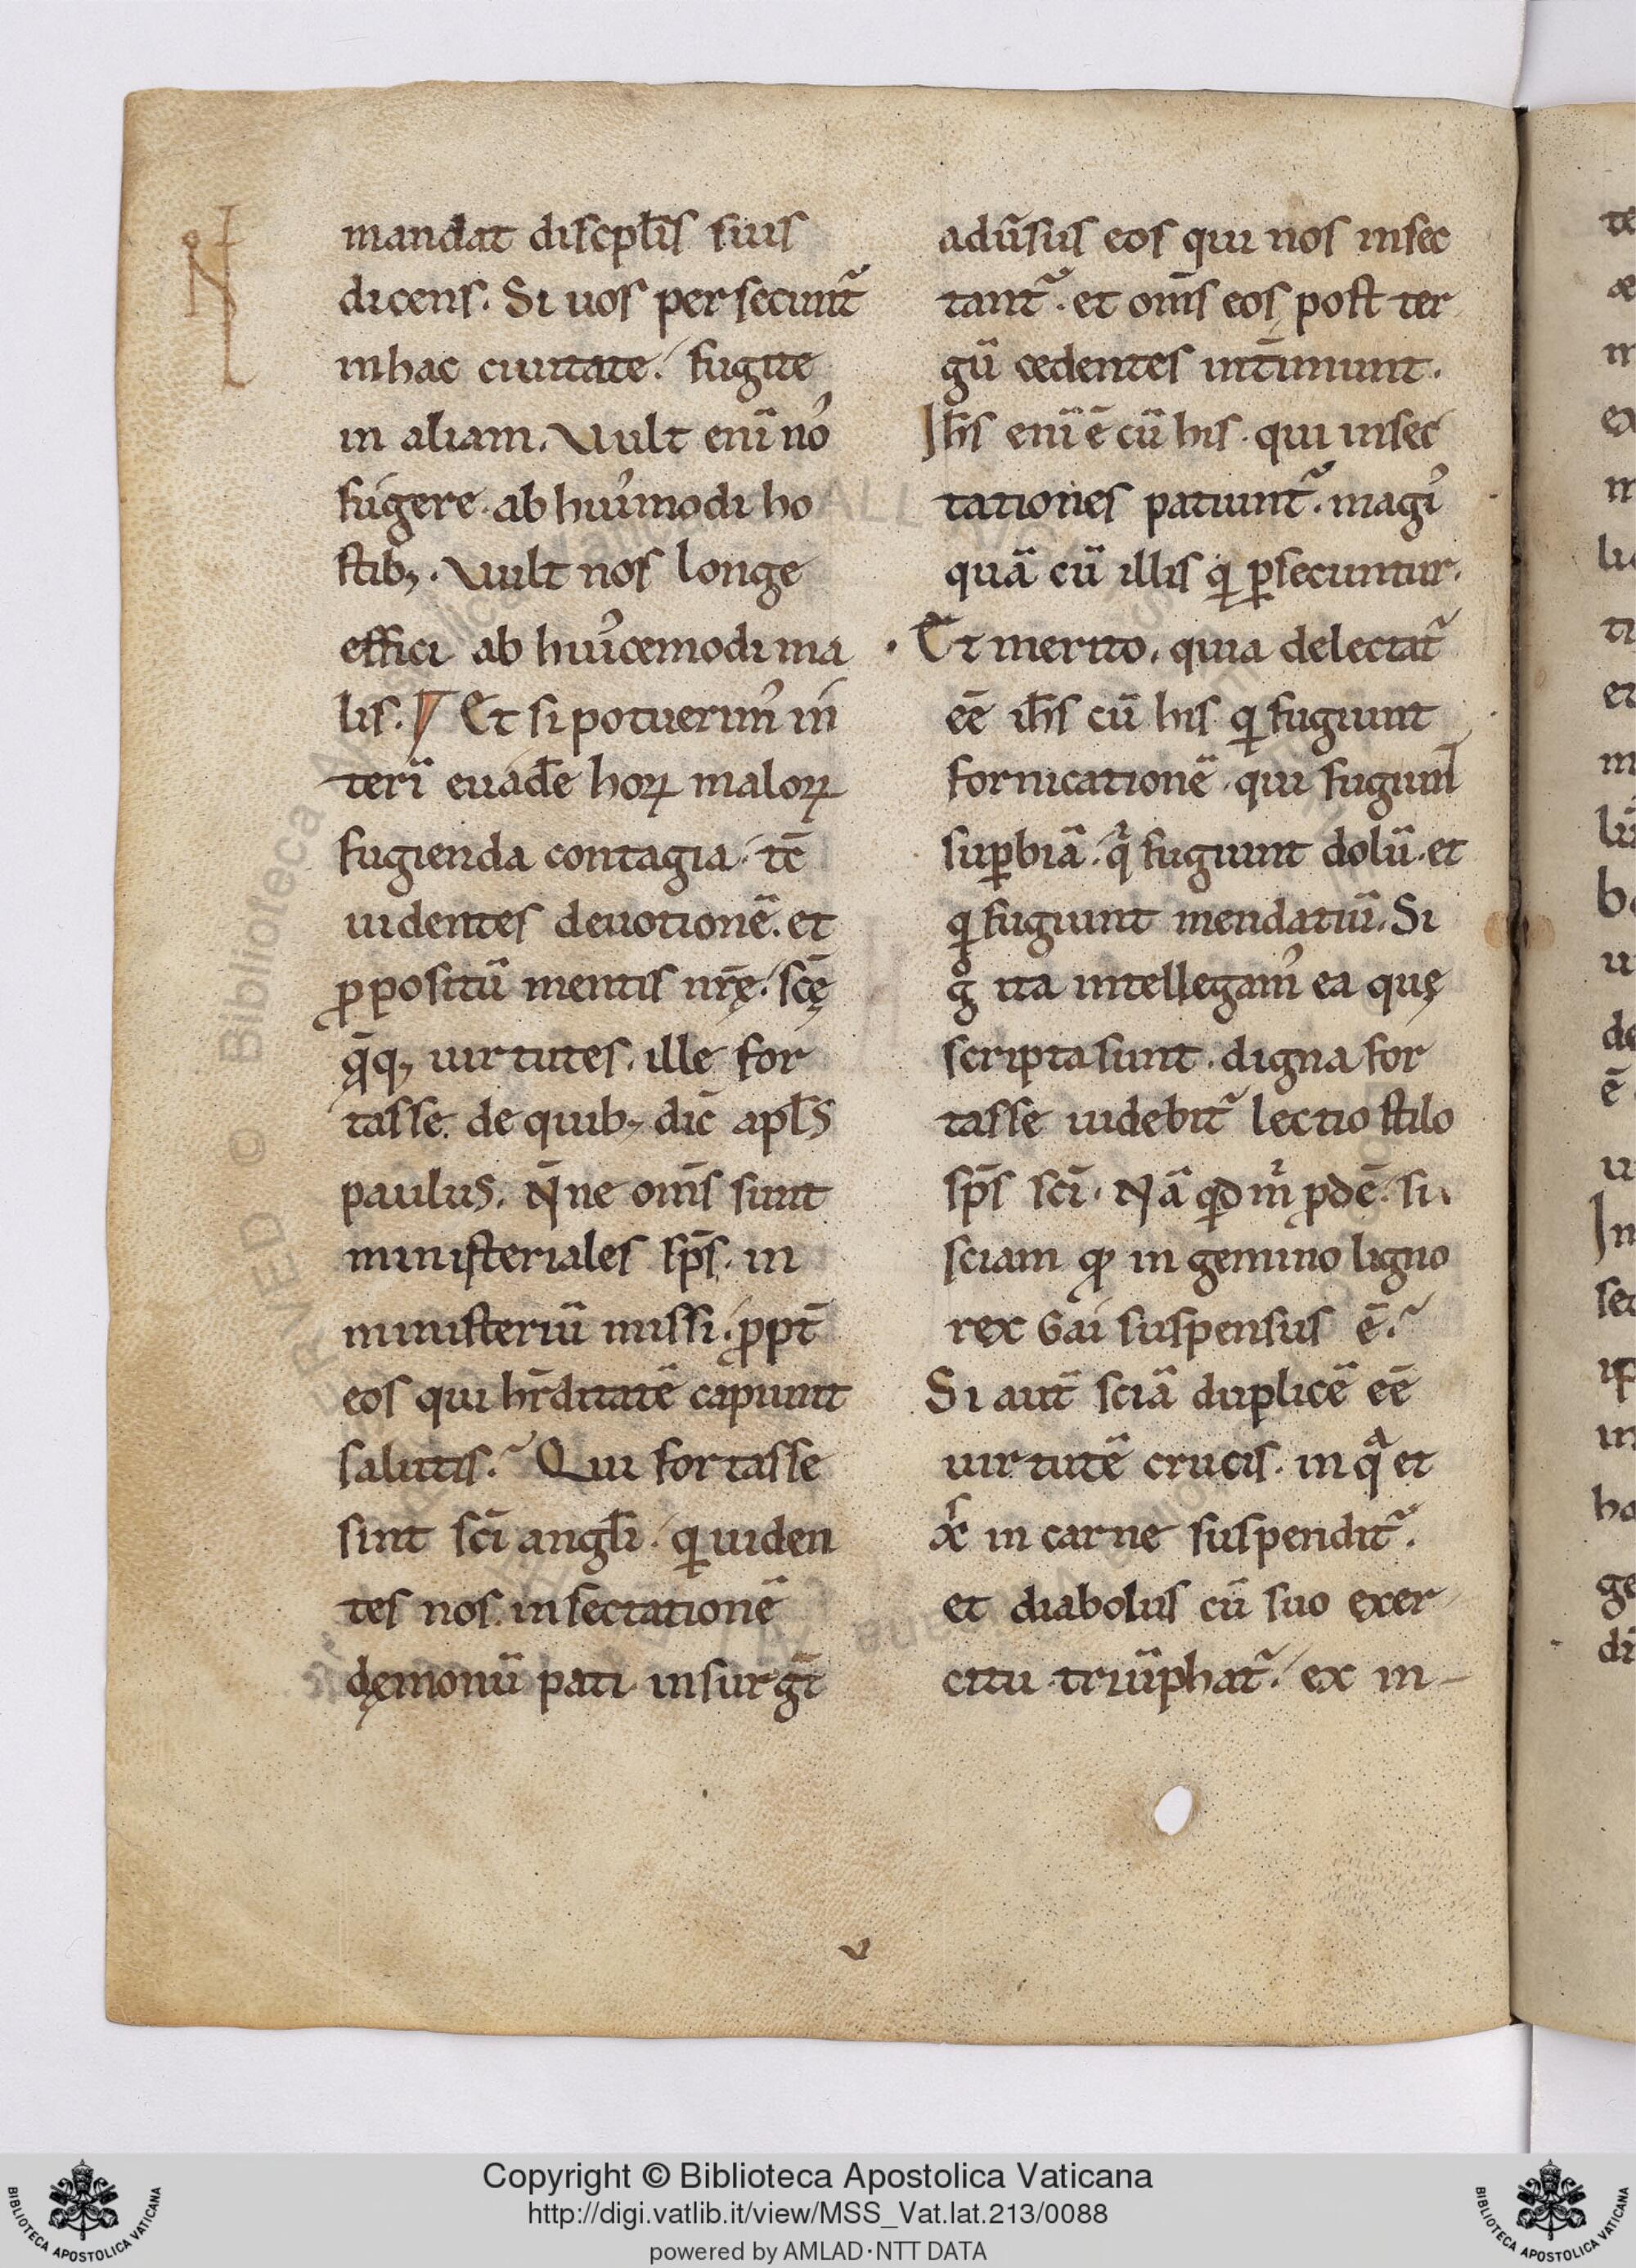 mandat discpl̄is suis
dicens. Si uos persecunt᷑
inhac ciuitate. fugite
in aliam. Vult enī no᾽
fugere. ab hui᾽modi ho
stib; . Vult nos longe
effici ab hui᾽cemodi ma
lis. Et si potuerim᾽ in
terī euadē horꝝ malorꝝ
fugienda contagia. tc̄
uidentes deuotionē. et
ꝓpositū mentis nr̄ę. sc̄ę
q̄q; uirtutes. ille for
tasse. de quib; dic̄ apl̄s
paulus. N̄ne om̄s sunt
ministeriales sp̄s. in
ministeriū missi. ꝓpt̄
eos qui hr̄ditatē capiunt
salutis. Qui fortasse
sint sc̄i angl̄i. qͥ uiden
tes nos insectationē
dęmonū pati insurgt̄
adūsus eos qui nos insec
tant᷑. et om̄s eos post ter
gū cedentes int̄imunt.
Ih̄s enī ē cū his. qui insec
tationes patiunt᷑. magi᾽
quā cū illis qͥ ꝑsecuntur.
Et merito, quia delectat᷑
eē ih̄s cū his qͥ fugiunt
fornicationē. qui fugiunt
suꝑbiā. qͥ fugiunt dolū. et
qͥ fugiunt mendatiū. Si
gͦ ita intellegam᾽ ea quę
scripta sunt. digna for
tasse uidebit᷑ lectio stilo
sp̄s sc̄i. Nā qͥd m̊ ꝓdē. si
sciam qd in gemino ligno
rex Gai suspensus ē.
Si aut̄ sciā duplicē eē
uirtutē crucis. in qͣ et
xr̄ in carne suspendit᷑.
et diabolus cū suo exer
citu triūphat᷑. ex in-
Copyright © Biblioteca Apostolica Vaticana
http://digi.vatlib.it/view/MSS_Vat.lat.213/0088
powered by AMLAD·NTT DATA
BIBLIOTECA APOSTOLICA VATICANA
BIBLIOTECA APOSTOLICA VATICANA